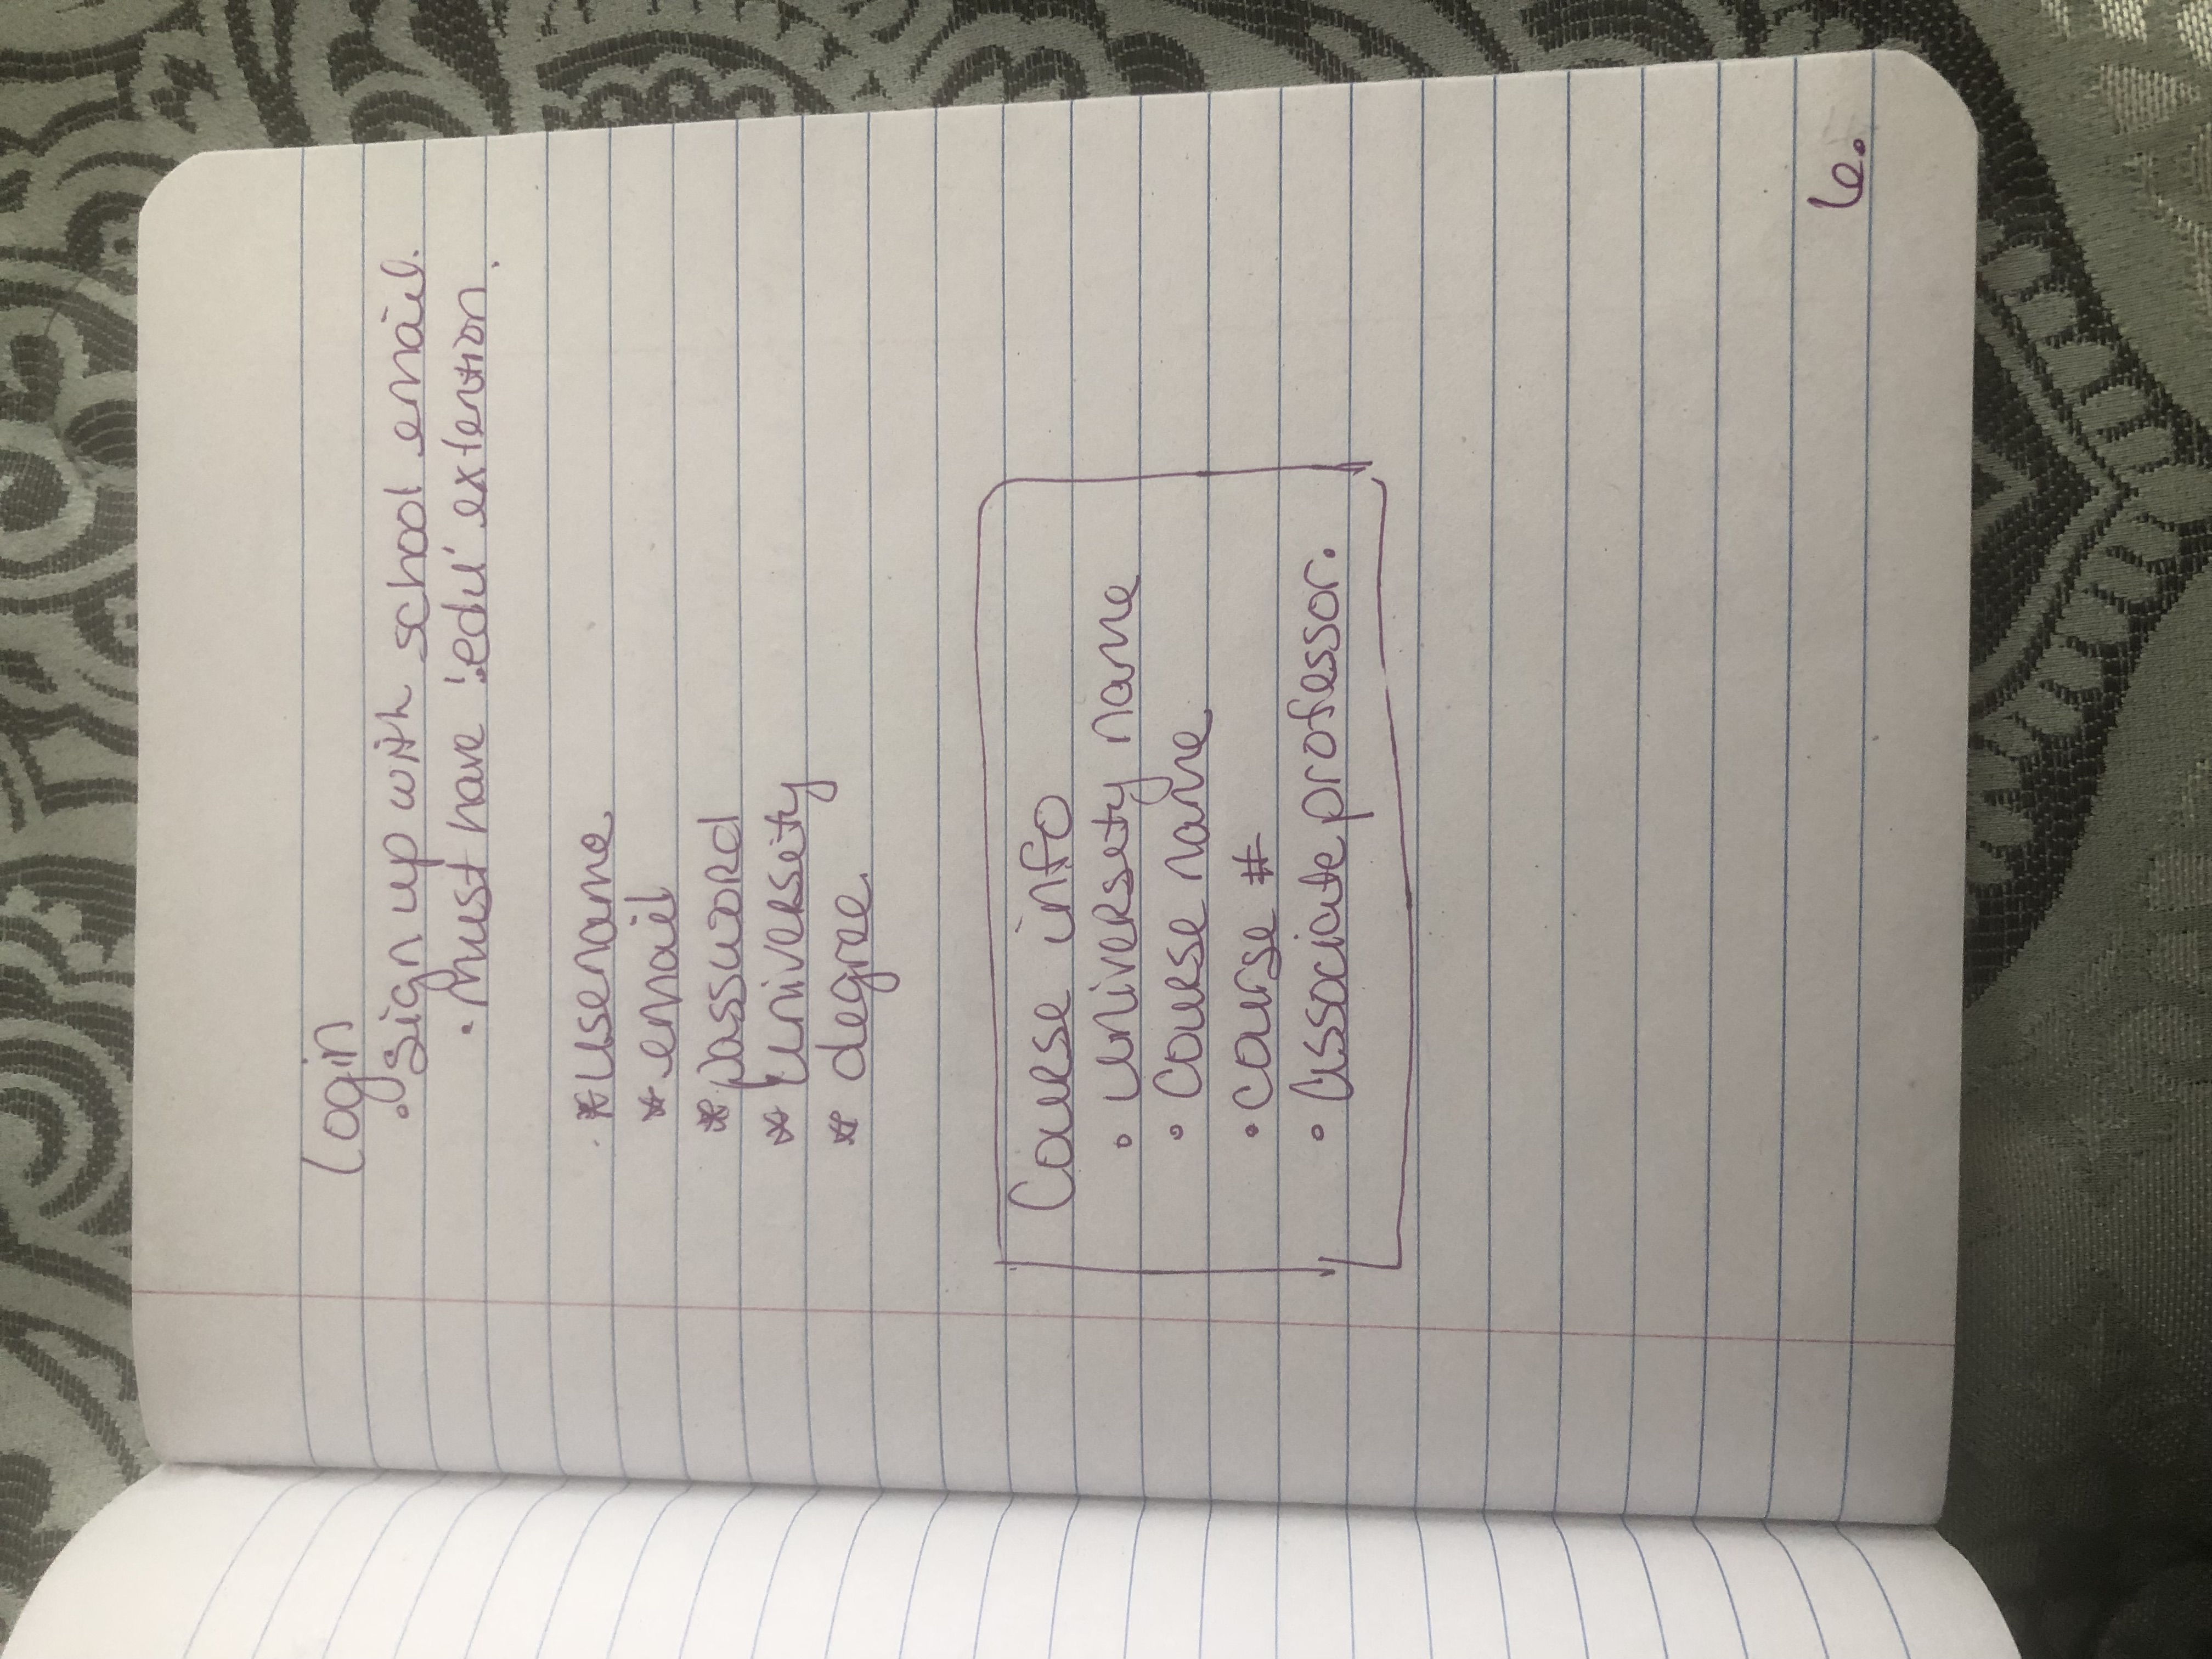 Login
• Sign up with school email.
• Must have '.edu' extention.
* usename
* email
* password
* Universety
* degree.
Course info
• Universety name
• Course name
• Course #
• Associate professor.
6.